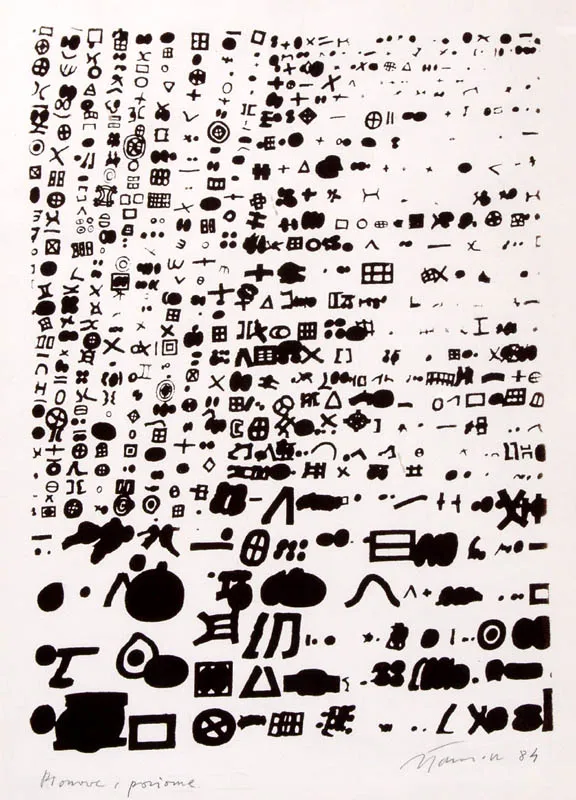 Pionowe i poziome
Tarasin 84